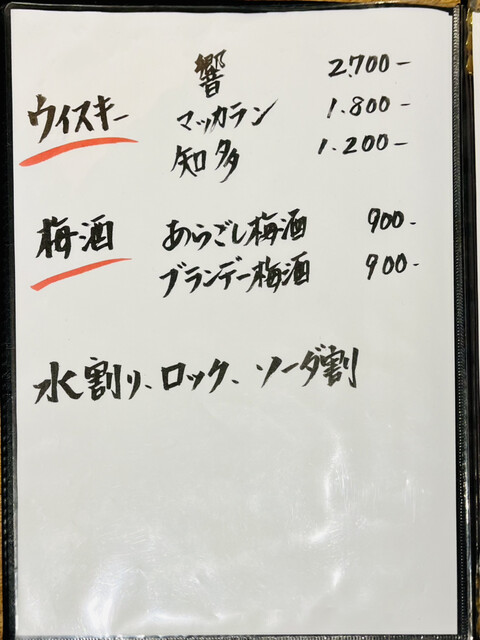 響 2.700-
ウイスキー マッカラン 1.800-
知多 1.200-
梅酒 あらごし梅酒 900-
ブランデー梅酒 900-
水割り、ロック、ソーダ割